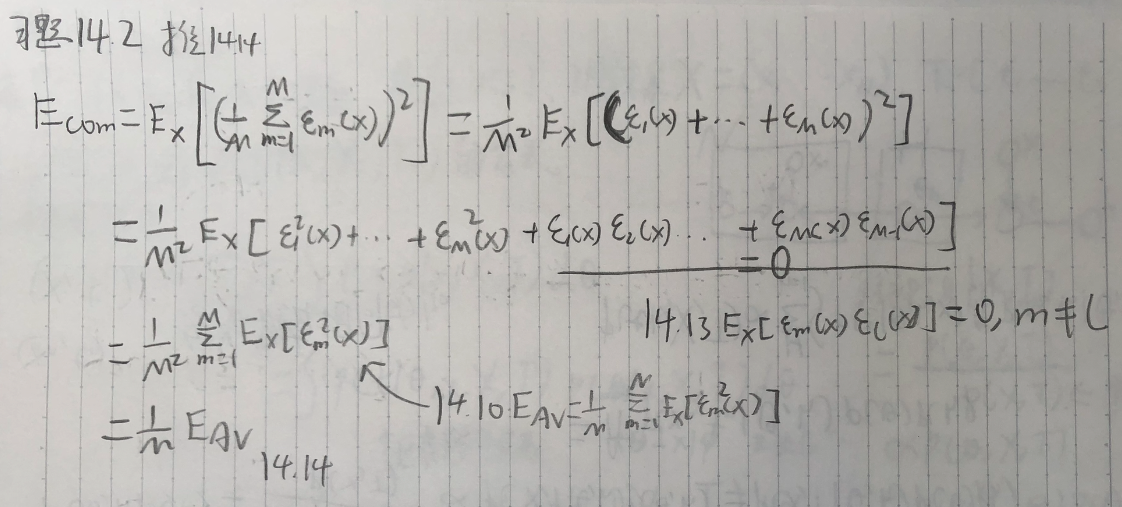 习题14.2 推14.14
E_COM = E_x[(1/M Σ_{m=1}^{M} ε_m(x))²] = 1/M² E_x[(ε₁(x) + ⋯ + ε_M(x))²]
= 1/M² E_x[ε₁²(x) + ⋯ + ε_M²(x) + ε₁(x) ε₂(x) ⋯ + ε_M(x) ε_{M-1}(x)]
= 0
= 1/M² Σ_{m=1}^{M} E_x[ε_m²(x)]
14.13 E_x[ε_m(x) ε_l(x)] = 0, m ≠ l
14.10 E_AV = 1/M Σ_{m=1}^{M} E_x[ε_m²(x)]
= 1/M E_AV
14.14